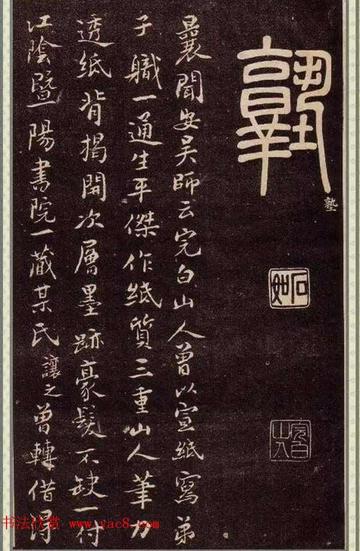 塾
塾
石如
完白山人
曩聞安吳師云完白山人曾以宣紙寫弟
子職一通生平傑作紙質三重山人筆力
透紙背揭開次層墨跡豪髮不缺一付
江陰暨陽書院一藏某氏讓之曾轉借得
书法欣赏 www.yac8.com